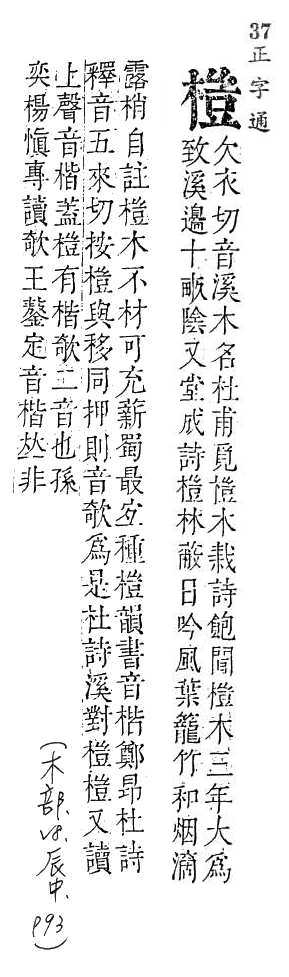 37
正字通
榿
欠衣切音溪木名杜甫覓榿木栽詩飽聞榿木三年大爲
致溪邊十畝陰又堂成詩榿林蔽日吟風葉籠竹和烟滴
露梢自註榿木不材可充薪蜀最宜種榿韻書音楷鄭昂杜詩
釋音五來切按榿與移同押則音欹爲是杜詩溪對榿榿又讀
上聲音楷蓋榿有楷欹二音也孫
奕楊愼專讀欹王鏊定音楷𠀤非
(木部.v8.辰中.P93)